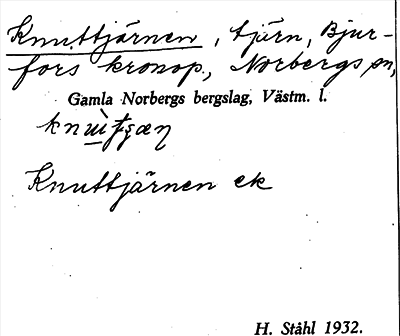 Knuttjärnen, tjärn, Bjur-
fors kronop., Norbergs sn,
Gamla Norbergs bergslag, Västm. l.
Knuttjärnen ek
H. Ståhl 1932.